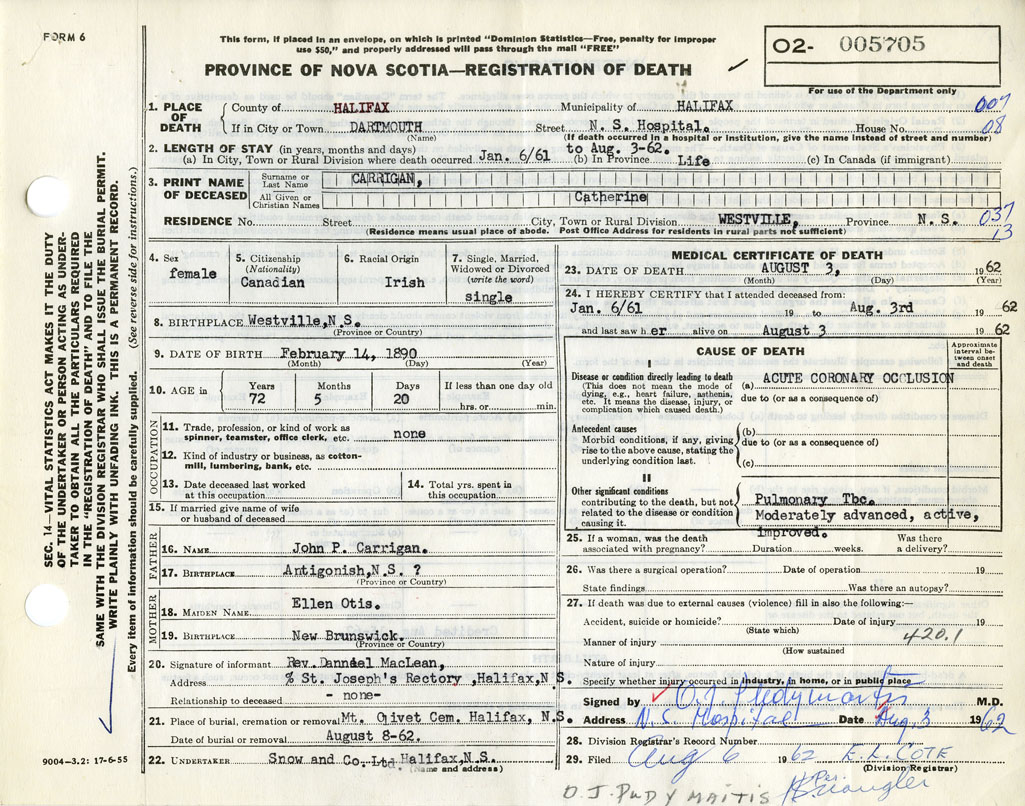 FORM 6
This form, if placed in an envelope, on which is printed "Dominion Statistics—Free, penalty for improper
use $50," and properly addressed will pass through the mail "FREE"
PROVINCE OF NOVA SCOTIA—REGISTRATION OF DEATH
O2- 005705
For use of the Department only
SEC. 14—VITAL STATISTICS ACT MAKES IT THE DUTY
OF THE UNDERTAKER OR PERSON ACTING AS UNDER-
TAKER TO OBTAIN ALL THE PARTICULARS REQUIRED
IN THE "REGISTRATION OF DEATH" AND TO FILE THE
SAME WITH THE DIVISION REGISTRAR WHO SHALL ISSUE THE BURIAL PERMIT.
WRITE PLAINLY WITH UNFADING INK. THIS IS A PERMANENT RECORD.
Every item of information should be carefully supplied. (See reverse side for instructions.)
1. PLACE OF DEATH
County of HALIFAX Municipality of HALIFAX 007
If in City or Town DARTMOUTH Street N. S. Hospital. House No. 08
(Name) (If death occurred in a hospital or institution, give the name instead of street and number)
2. LENGTH OF STAY (in years, months and days) to Aug. 3-62.
(a) In City, Town or Rural Division where death occurred Jan. 6/61 (b) In Province Life (c) In Canada (if immigrant)
3. PRINT NAME OF DECEASED
Surname or Last Name CARRIGAN,
All Given or Christian Names Catherine
RESIDENCE No. Street City, Town or Rural Division WESTVILLE, Province N. S. 037
(Residence means usual place of abode. Post Office Address for residents in rural parts not sufficient) 13
4. Sex female
5. Citizenship (Nationality) Canadian
6. Racial Origin Irish
7. Single, Married, Widowed or Divorced (write the word) single
8. BIRTHPLACE Westville,N.S.
(Province or Country)
9. DATE OF BIRTH February 14, 1890
(Month) (Day) (Year)
10. AGE in Years 72 Months 5 Days 20 If less than one day old hrs. or min.
OCCUPATION
11. Trade, profession, or kind of work as
spinner, teamster, office clerk, etc. none
12. Kind of industry or business, as cotton-
mill, lumbering, bank, etc.
13. Date deceased last worked
at this occupation
14. Total yrs. spent in
this occupation
15. If married give name of wife
or husband of deceased
FATHER
16. NAME John P. Carrigan.
17. BIRTHPLACE Antigonish,N.S. ?
(Province or Country)
MOTHER
18. MAIDEN NAME Ellen Otis.
19. BIRTHPLACE New Brunswick.
(Province or Country)
20. Signature of informant Rev. Danniel MacLean,
Address % St. Joseph's Rectory ,Halifax,N.S.
Relationship to deceased - none-
21. Place of burial, cremation or removal Mt. Olivet Cem. Halifax, N.S.
Date of burial or removal August 8-62.
22. UNDERTAKER Snow and Co. Ltd. Halifax,N.S.
(Name and address)
9004-3.2: 17-6-55
MEDICAL CERTIFICATE OF DEATH
23. DATE OF DEATH AUGUST 3, 1962
(Month) (Day) (Year)
24. I HEREBY CERTIFY that I attended deceased from:
Jan. 6/61 19 to Aug. 3rd 19 62
and last saw her alive on August 3 1962
CAUSE OF DEATH
Approximate interval be- tween onset and death
I
Disease or condition directly leading to death (a) ACUTE CORONARY OCCLUSION
(This does not mean the mode of
dying, e.g., heart failure, asthenia,
etc. It means the disease, injury, or
complication which caused death.)
due to (or as a consequence of)
Antecedent causes
Morbid conditions, if any, giving
rise to the above cause, stating the
underlying condition last.
(b)
due to (or as a consequence of)
(c)
II
Other significant conditions
contributing to the death, but not
related to the disease or condition
causing it.
Pulmonary Tbc.
Moderately advanced, active,
improved.
25. If a woman, was the death
associated with pregnancy? Duration weeks. Was there
a delivery?
26. Was there a surgical operation? Date of operation 19
State findings Was there an autopsy?
27. If death was due to external causes (violence) fill in also the following:—
Accident, suicide or homicide? Date of injury 19
(State which) 420.1
Manner of injury
(How sustained
Nature of injury
Specify whether injury occurred in industry, in home, or in public place
Signed by O.J. Pudymaitis M.D.
Address N. S. Hospital Date Aug. 3 1962
28. Division Registrar's Record Number
29. Filed Aug 6 1962 E. L. COTE
(Division Registrar)
Per.
O. J. PUDYMAITIS